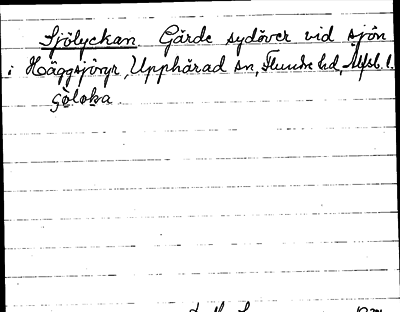 Sjölyckan Gärde sydöver vid sjön
i Häggsjöryr, Upphärad sn, Flundre hd, Älfsb. l.